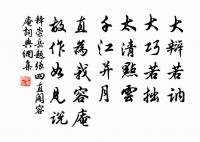 大辯若訥
大巧若拙
太清點雲
千江并月
直為我容庵
故作如見説
釋崇岳題張四直閣容
庵詞典網集